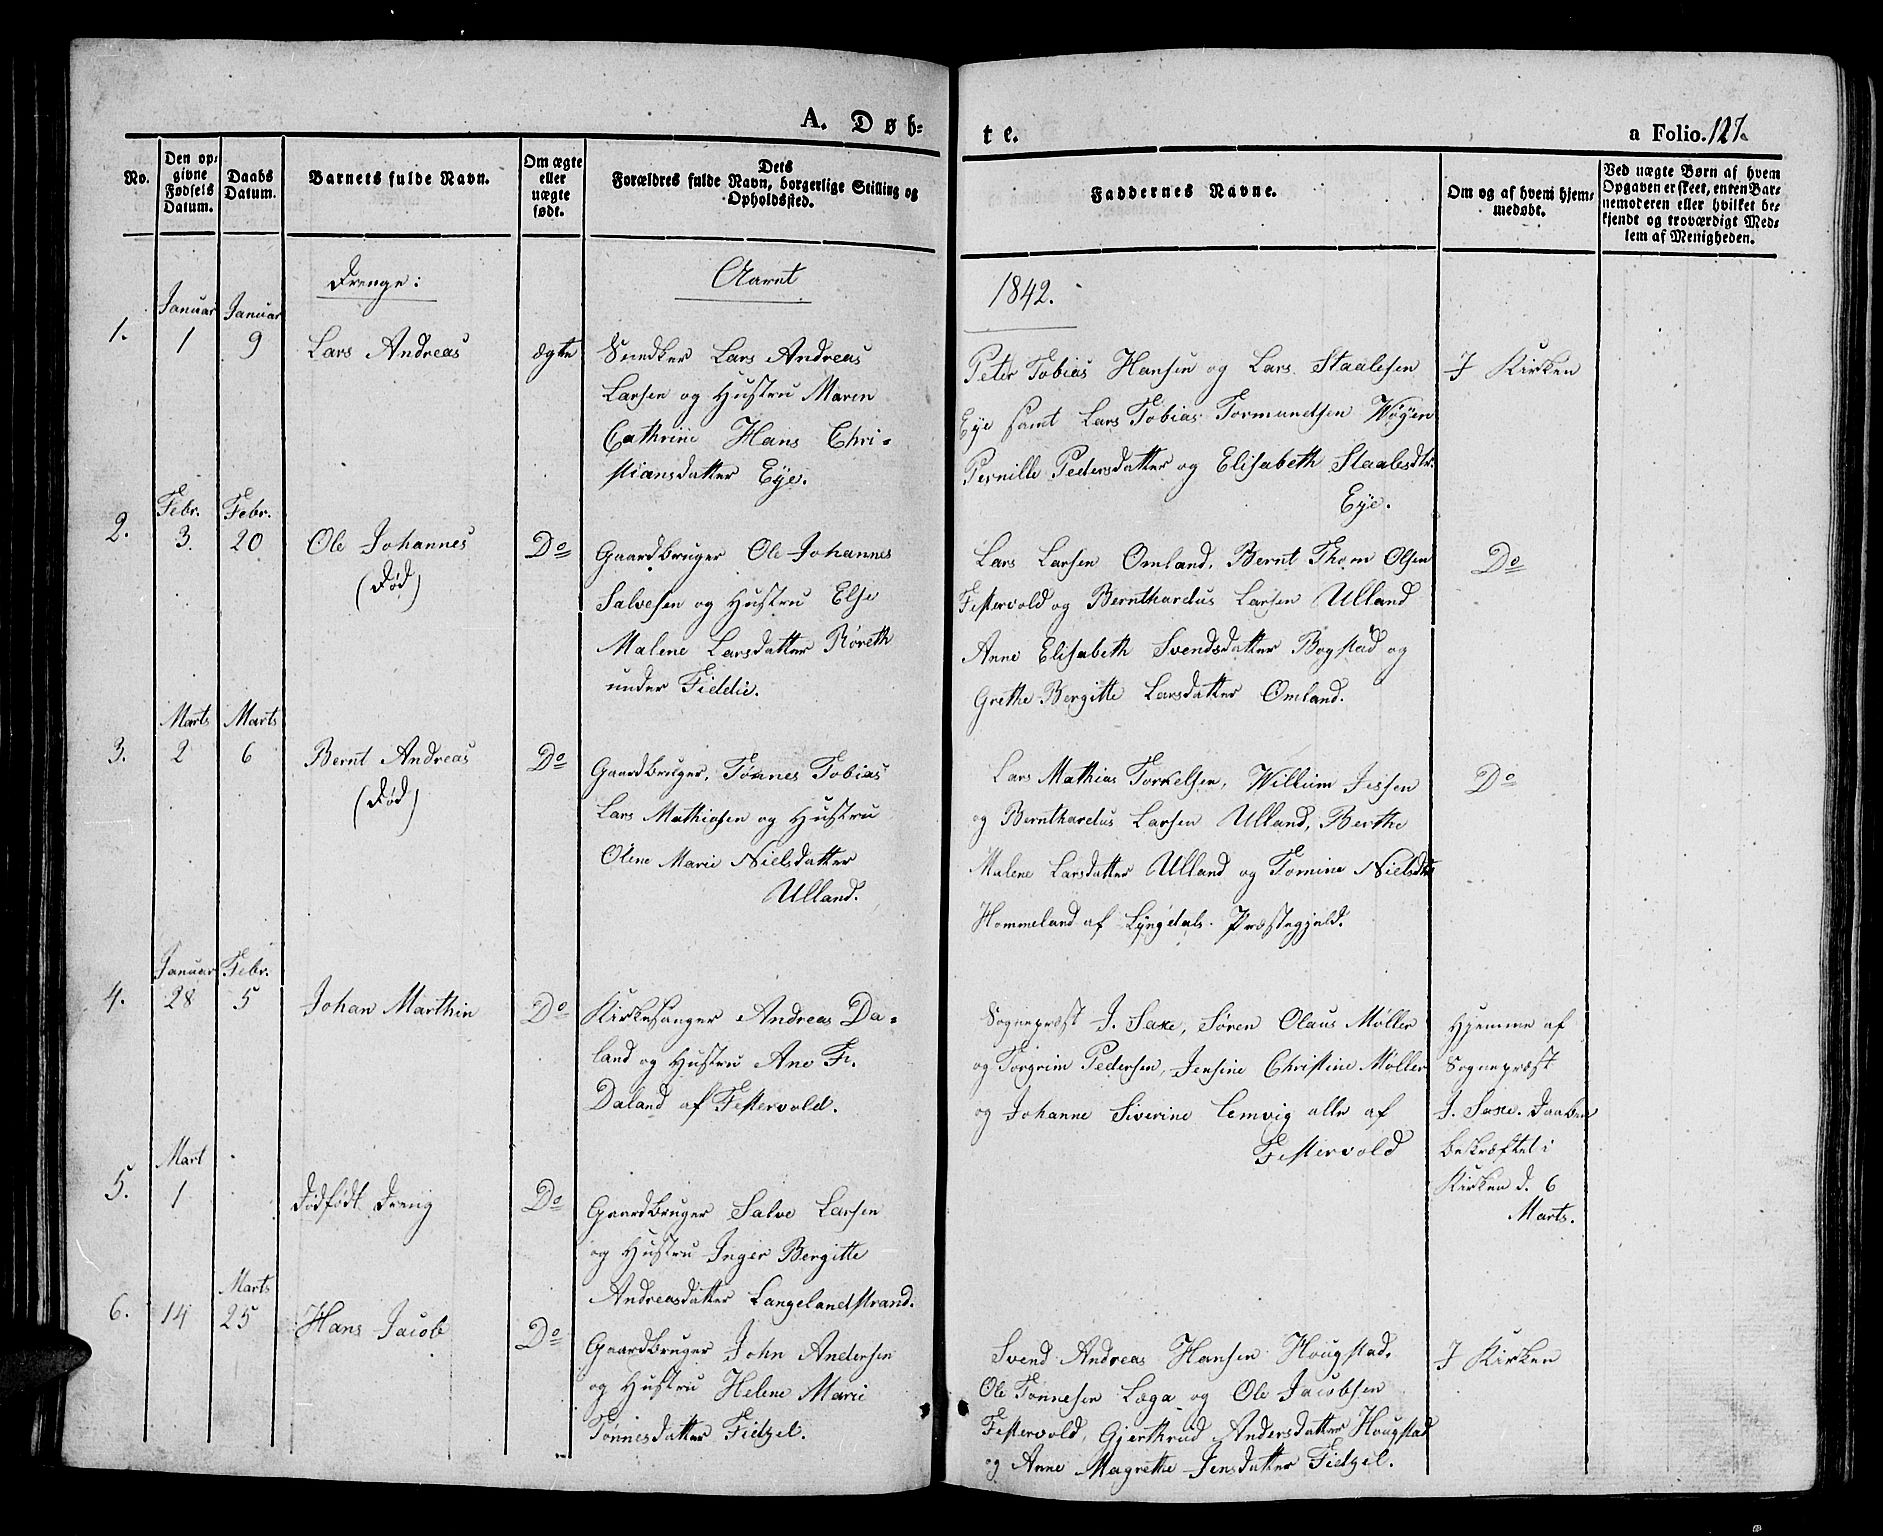 A. Døb-
te.
a Folio. 127a
No.
Den op-
givne
Fødsels
Datum.
Daabs
Datum.
Barnets fulde Navn.
Om ægte
eller
uægte
født.
Dets
Forældres fulde Navn, borgerlige Stilling og
Opholdssted.
Faddernes Navne.
Om og af hvem hjem-
medøbt.
Ved uægte Børn af hvem
Opgaven er skeet, enten Bar-
nemoderen eller hvilket be-
kjendt og troværdigt Med-
lem af Menigheden.
Drenge:
Aaret
1842.
1.
Januar
1
Januar
9
Lars Andreas
ægte
Snedker Lars Andreas
Larsen og Hustru Maren
Cathrine Hans Chri-
stiansdatter Eye.
Peter Tobias Hansen og Lars Staalesen
Eye samt Lars Tobias Tormundsen Woÿen
Pernille Pedersdatter og Elisabeth Staalesdtr.
Eye.
I Kirken
2.
Febr.
3.
Febr.
20
Ole Johannes
(Død)
Do
Gaardbruger Ole Johannes
Salvesen og Hustru Else
Malene Larsdatter Røreth
under Fiddie.
Lars Larsen Omland, Bernt Thom Olsen
Festervold og Bernthardus Larsen Ulland
Anne Elisabeth Svendsdatter Bogstad og
Grethe Bergitte Larsdatter Omland.
Do
3.
Marts
2
Marts
6
Bernt Andreas
(Død)
Do
Gaardbruger, Tønnes Tobias
Lars Mathiasen og Hustru
Olene Marie Nielsdatter
Ulland.
Lars Mathias Torkelsen, Willium Jessen
og Bernthardus Larsen Ulland, Berthe
Malene Larsdatter Ulland og Tomine Nielsdtr
Hommeland af Lyngdals Præstegjeld.
Do
4.
Januar
28
Febr.
5
Johan Marthin
Do
Kirkesanger Andreas Da-
land og Hustru Ane F.
Daland af Festervold.
Sognepræst J. Saxe, Søren Olaus Møller
og Torgrim Pedersen, Jensine Christine Møller
og Johanne Siverine Lemvig alle af
Festervold
Hjemme af
Sognepræst
J. Saxe. Daaben
bekræftet i
Kirken d. 6
Marts.
5.
Mart
1
Dødfødt Dreng
Do
Gaardbruger Salve Larsen
og Hustru Inger Bergitte
Andreasdatter Langelandstrand.
6.
14
Marts
25
Hans Jacob
Do
Gaardbruger John Andersen
og Hustru Helene Marie
Tønnesdatter Fidzel.
Svend Andreas Hansen Hougstad.
Ole Tønnesen Læga og Ole Jacobsen
Festervold, Gjerthrud Andersdatter Hougstad
og Anne Magrethe Jensdatter Fidzel.
I Kirken